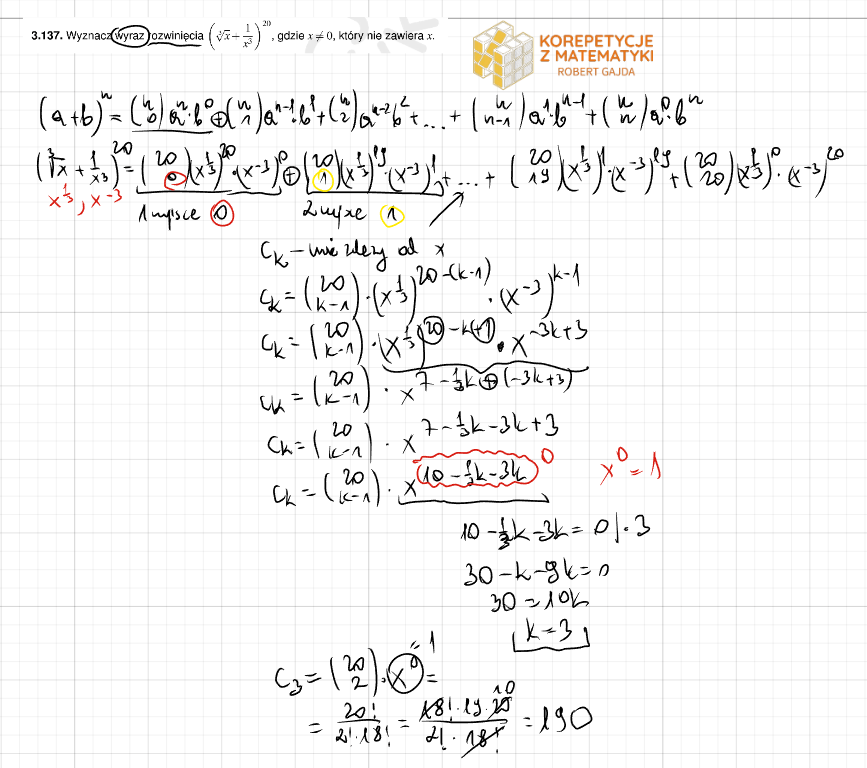 3.137. Wyznacz wyraz rozwinięcia (∛x + 1/x³)^20, gdzie x ≠ 0, który nie zawiera x.
KOREPETYCJE
Z MATEMATYKI
ROBERT GAJDA
(a+b)^n = (n 0) a^n · b^0 ⊕ (n 1) a^(n-1) · b^1 + (n 2) a^(n-2) b^2 + ... + (n n-1) a^1 · b^(n-1) + (n n) a^0 · b^n
(∛x + 1/x³)^20 = (20 0)(x^(1/3))^20 · (x^-3)^0 ⊕ (20 1)(x^(1/3))^19 · (x^-3)^1 + ... + (20 19)(x^(1/3))^1 · (x^-3)^19 + (20 20)(x^(1/3))^0 · (x^-3)^20
x^(1/3), x^-3
1 miejsce 0 2 miejsce 1
C_k – nie zależy od x
C_k = (20 k-1) · (x^(1/3))^(20-(k-1)) · (x^-3)^(k-1)
C_k = (20 k-1) · (x^(1/3))^(20-k+1) · x^(-3k+3)
C_k = (20 k-1) · x^(7 - 1/3k ⊕ (-3k+3))
C_k = (20 k-1) · x^(7 - 1/3k - 3k + 3)
C_k = (20 k-1) · x^(10 - 1/3k - 3k) 0 x^0 = 1
10 - 1/3k - 3k = 0 | · 3
30 - k - 9k = 0
30 = 10k
k = 3
C_3 = (20 2) · x^0 = " 1
= 20!/(2! · 18!) = (18! · 19 · 20)/(2! · 18!) 10 = 190